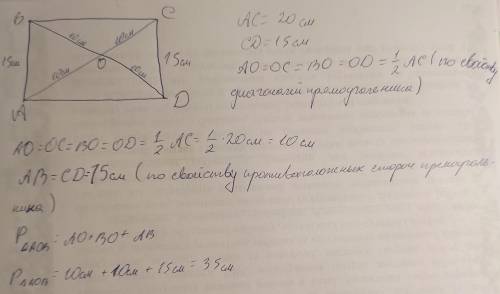 B C
10см 10см
15см O 15см
10см 10см
A D
AC = 20см
CD = 15см
AO=OC=BO=OD=1/2 AC (по свойству
диагоналей прямоугольника)
AO=OC=BO=OD=1/2 AC=1/2·20см=10см
AB=CD=15см (по свойству противоположных сторон прямоуголь-
ника)
P△AOB=AO+BO+AB
P△AOB=10см+10см+15см=35см